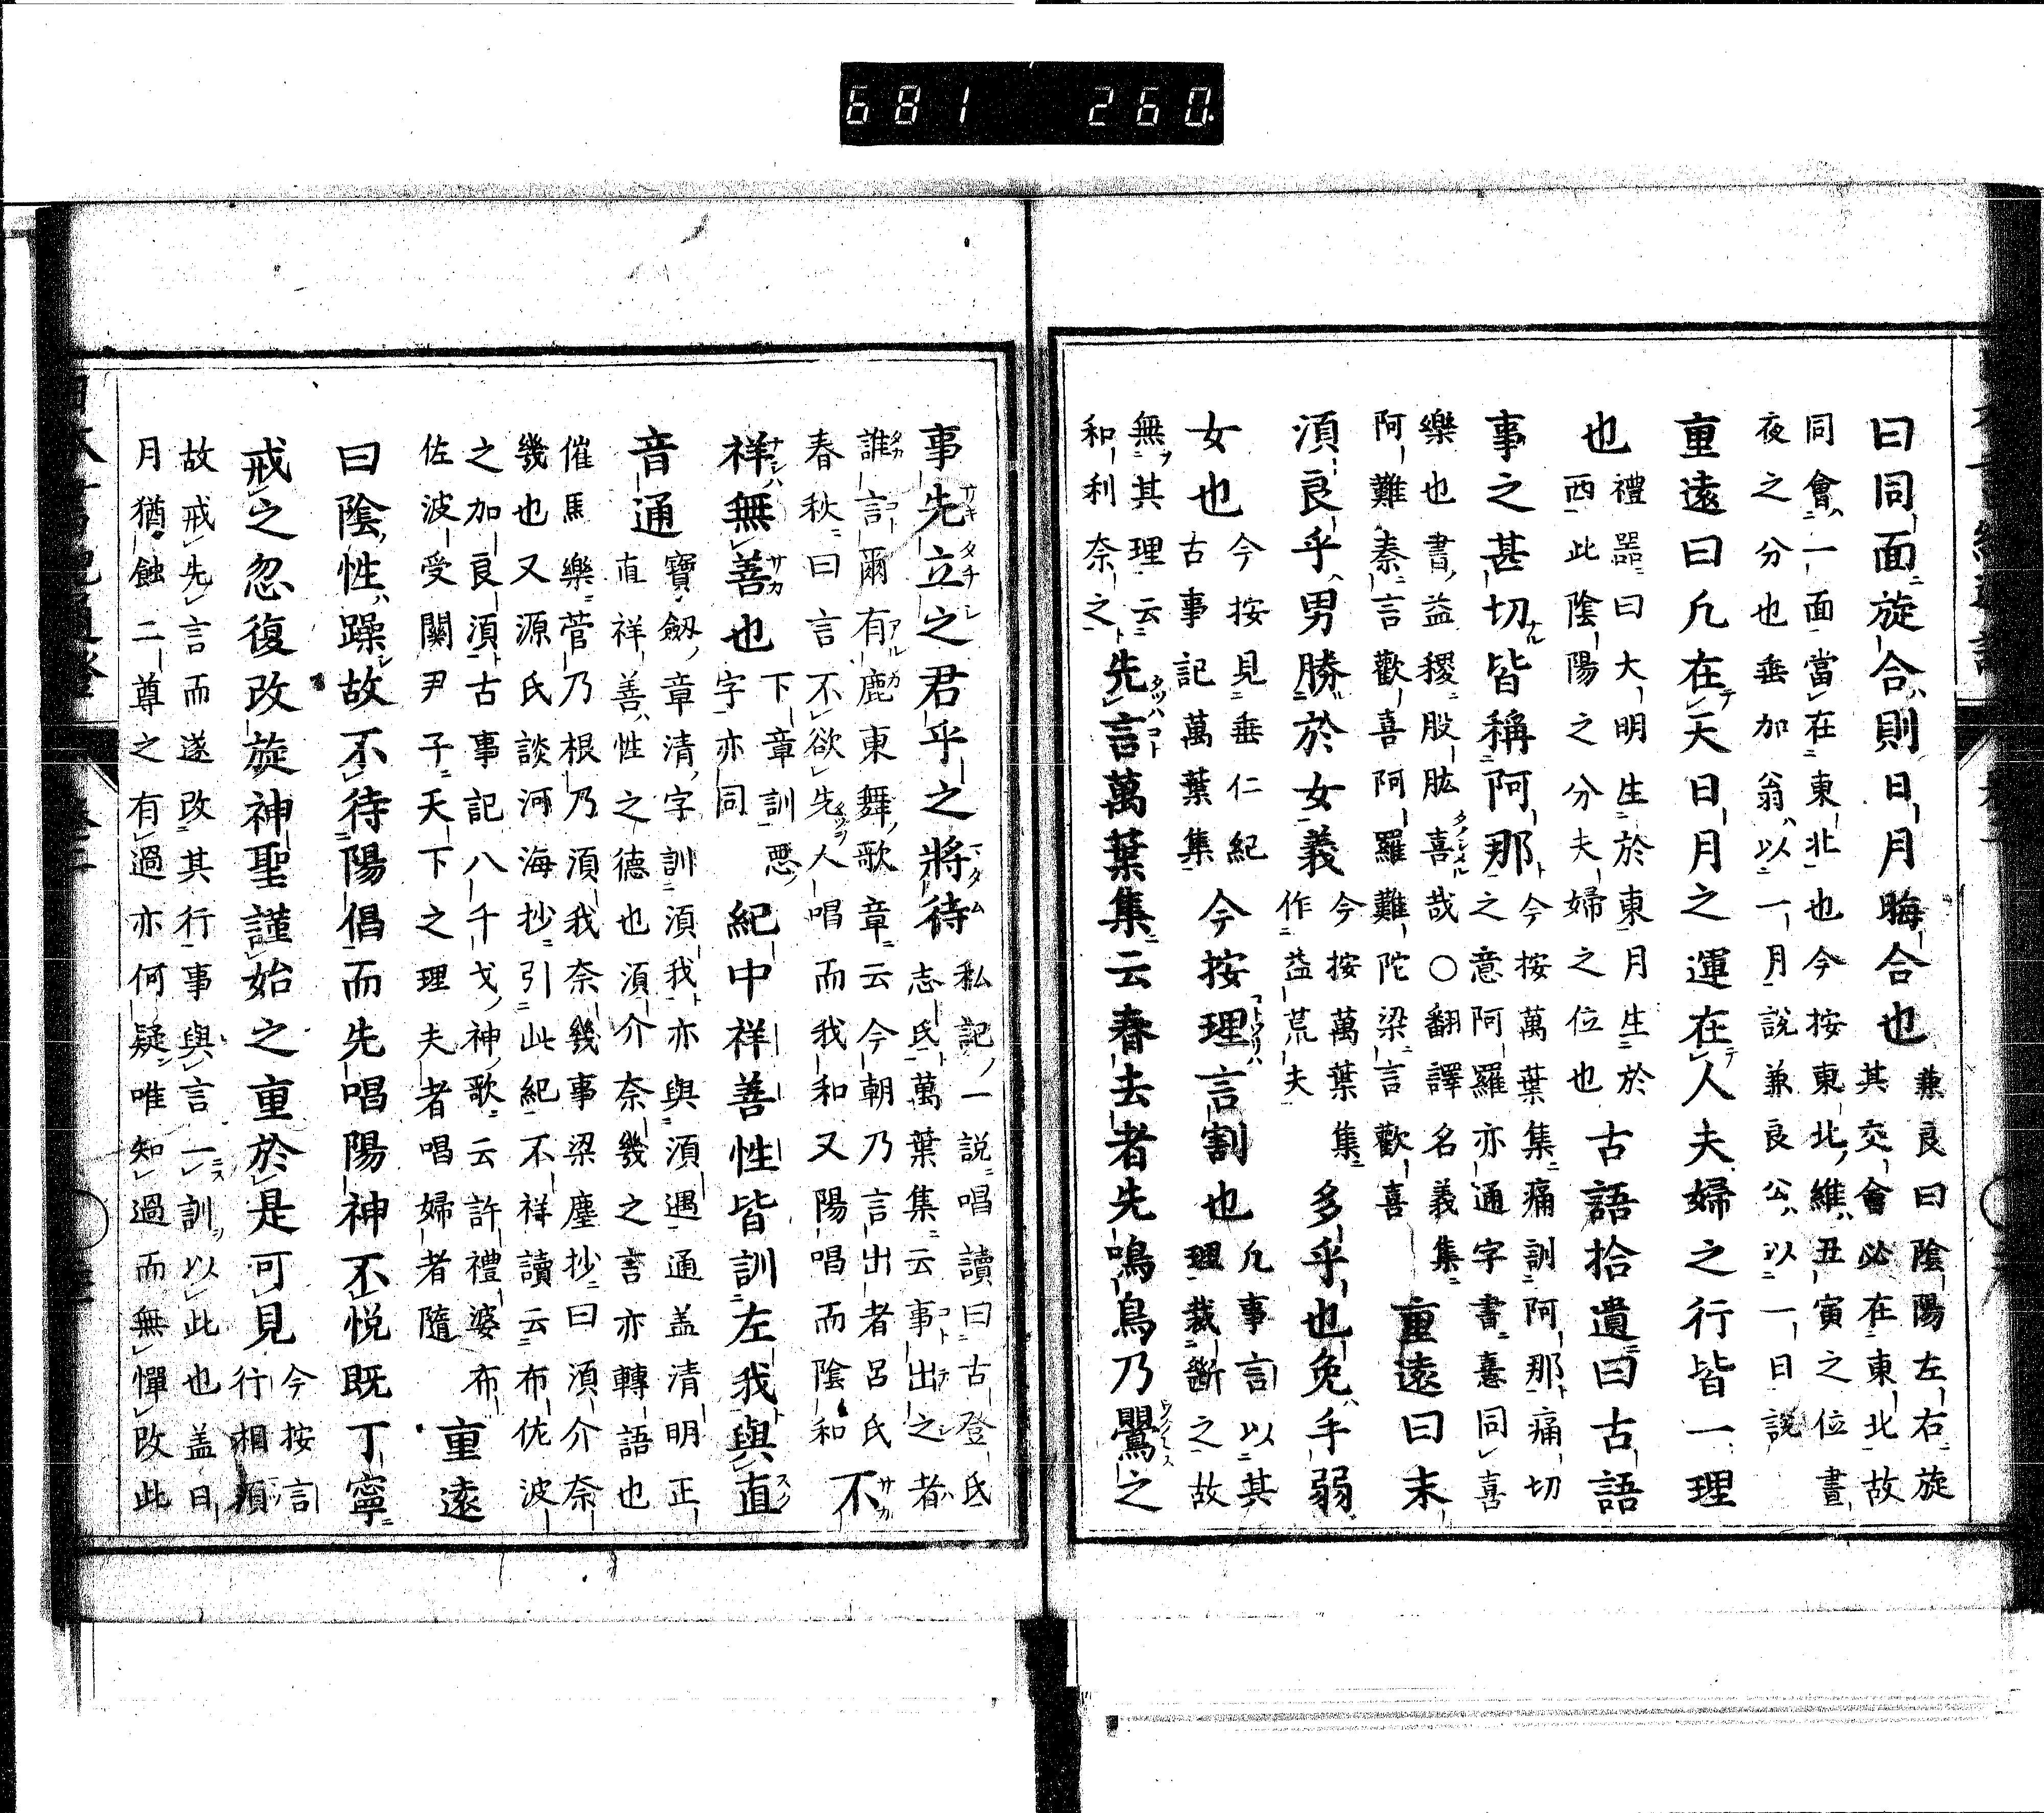 681 260
曰同面旋合則日月晦合也 兼良曰陰陽左右旋
其交會必在東北故
同會一面當在東北也今按東北維丑寅之位晝
夜之分也垂加翁以一月說兼良公以一日說
重遠曰凡在天日月之運在人夫婦之行皆一理
也 禮器曰大明生於東月生於
西此陰陽之分夫婦之位也 古語拾遺曰古語
事之甚切皆稱阿那 今按萬葉集痛訓阿那痛切
之意阿羅亦通字書憙同喜
樂也書益稷股肱喜哉○翻譯名義集
阿難秦言歡喜阿羅難陀梁言歡喜 重遠曰末
須良乎男勝於女義 今按萬葉集
作益荒夫 多乎也免手弱
女也 今按見垂仁紀
古事記萬葉集 今按理言割也 凡事言以其
理裁斷之故
無其理云
和利奈之 先言萬葉集云春去者先鳴鳥乃鸎之
事先立之君乎之將待 私記一説唱讀曰古登氐
志氐萬葉集云事出之者
誰言爾有鹿東舞歌章云今朝乃言出者呂氏
春秋曰言不欲先人唱而我和又陽唱而陰和 不
祥無善也 下章訓惡
字亦同 紀中祥善性皆訓左我與直
音通 寶劔章清字訓須我亦與須遇通盖清明正
直祥善性之德也須介奈幾之言亦轉語也
催馬樂菅乃根乃須我奈幾事梁塵抄曰須介奈
幾也又源氏談河海抄引此紀不祥讀云布佐波
之加良須古事記八千戈神歌云許禮婆布
佐波受關尹子天下之理夫者唱婦者隨 重遠
曰陰性躁故不待陽倡而先唱陽神不悦既丁寧
戒之忽復改旋神聖謹始之重於是可見 今按言
行相須
故戒先言而遂改其行事與言一訓以此也盖日
月猶蝕二尊之有過亦何疑唯知過而無憚改此